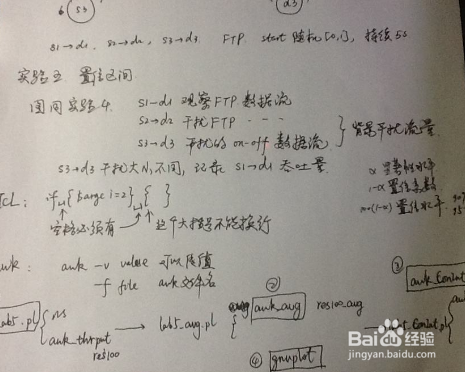 6 s3 d3
s1→d1, s2→d2, s3→d3. FTP. start 随机[0,1], 持续5s
实验五. 置信区间.
图同实验4. s1-d1 观察FTP数据流
s2-d2 干扰FTP - - -
s3-d3 干扰的on-off数据流
背景干扰流量
s3→d3 干扰大小不同, 记录 s1→d1 吞吐量.
α 显著性水平
1-α 置信系数
100(1-α) 置信水平. 90%
95%
TCL: if {$argc != 2} { }
空格必须有 这个大括号不能换行
awk: awk -v value
-f file awk文件名
② ③
lab5.pl ns
awk_thrput
res100
→ lab5_avg.pl
awk_avg res100_avg
awk_conInt
→ conInt.pl
④ gnuplot
Baidu经验
jingyan.baidu.com